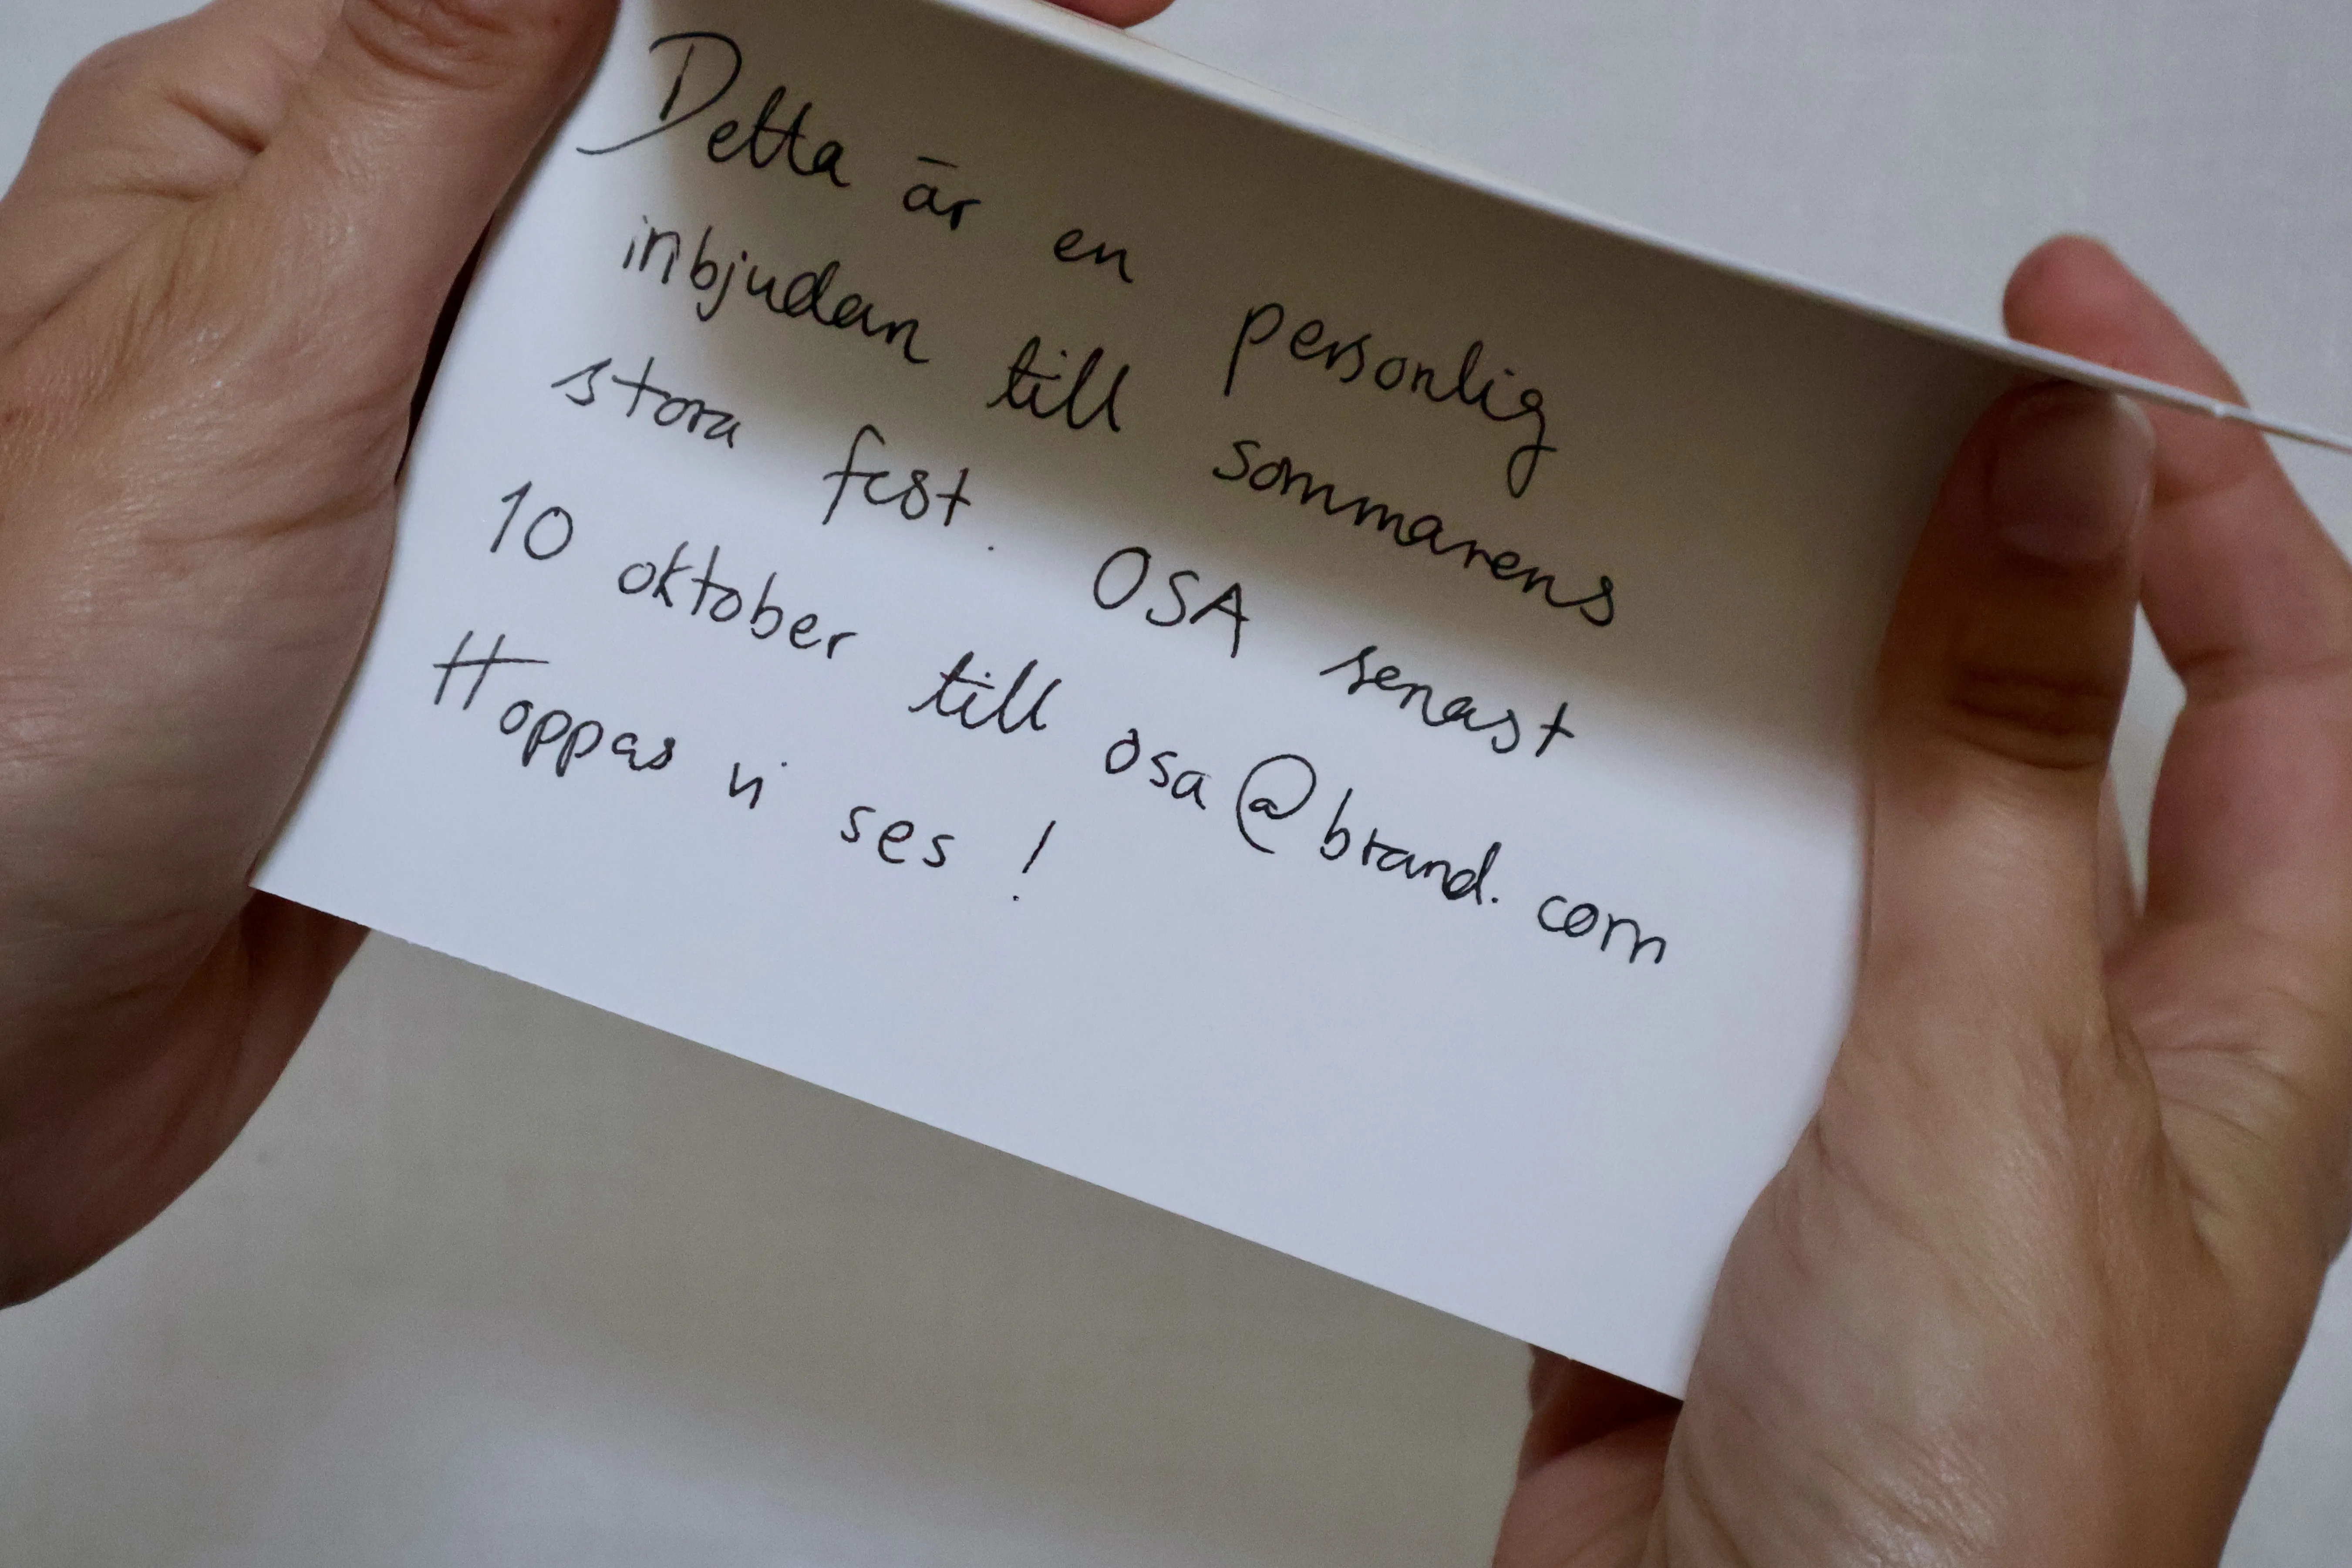 Detta är en personlig
inbjudan till sommarens
stora fest. OSA senast
10 oktober till osa@brand.com
Hoppas vi ses!